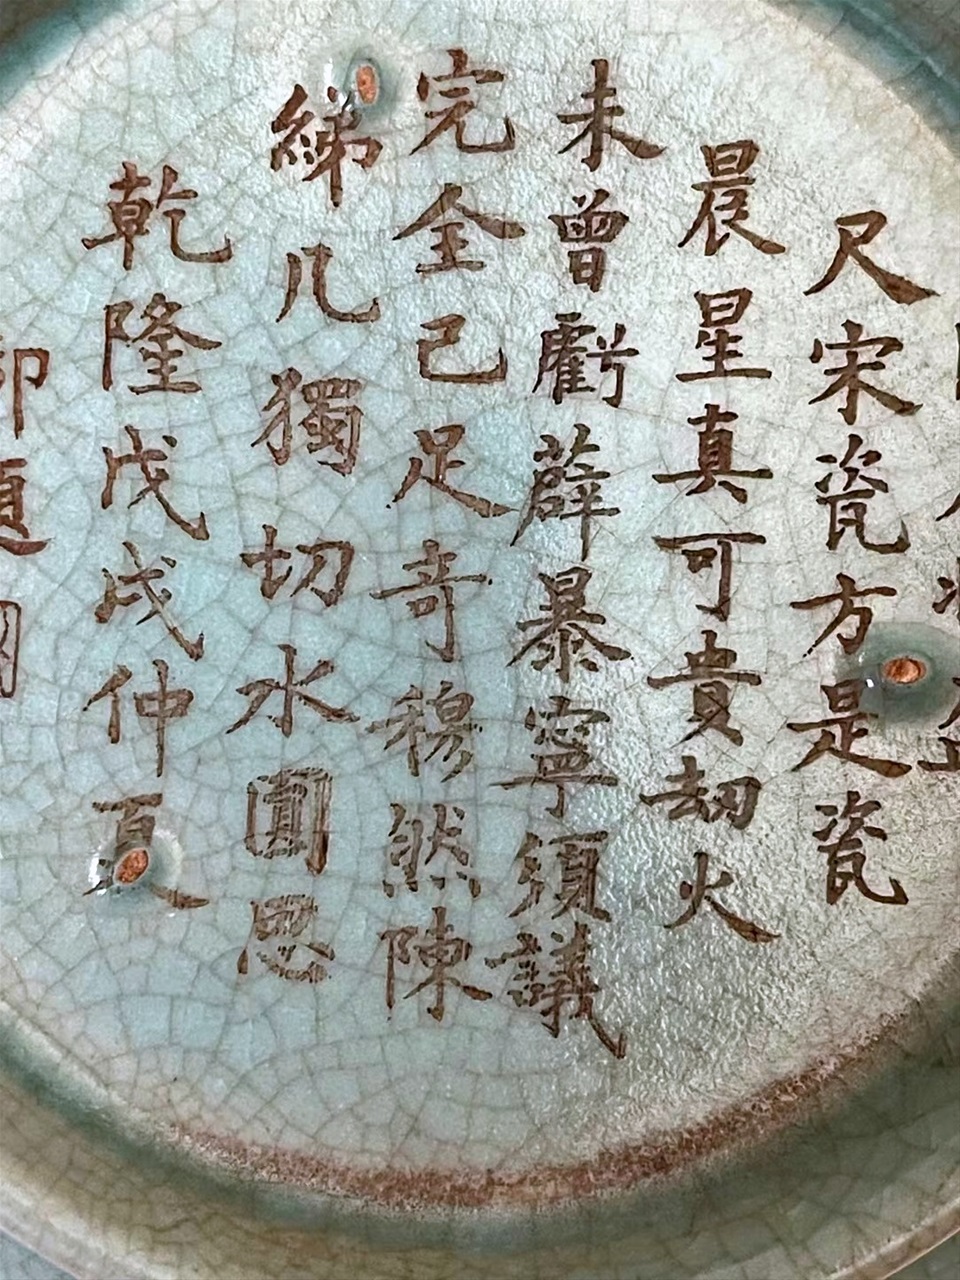 尺宋瓷方是瓷
晨星真可貴劫火
未曾虧薜暴寧須議
完全已足奇穆然陳
綈几獨切水圓思
乾隆戊戌仲夏
御題